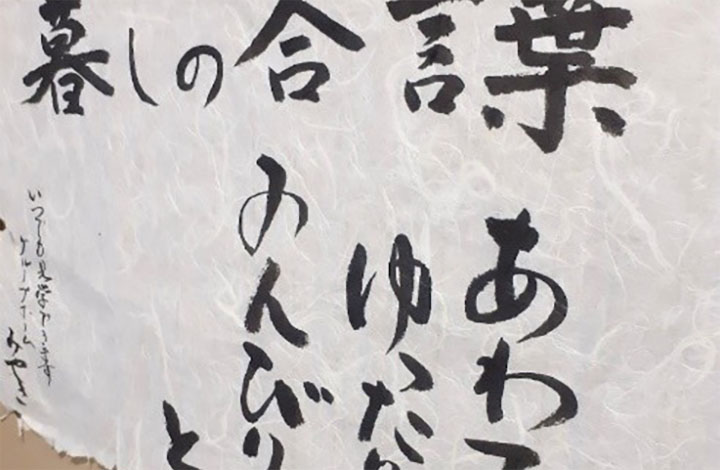 暮しの合言葉
あわて
ゆった
のんびり
と
いつでも見学できます
グループホーム